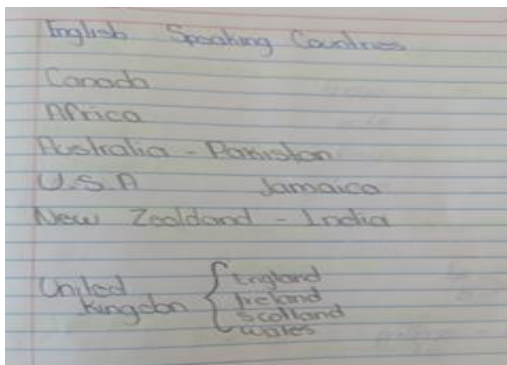 English Speaking Countries
Canada
Africa
Australia - Pakistan
U.S.A Jamaica
New Zealdand - India
United Kingdon { England
Ireland
Scotland
Wales